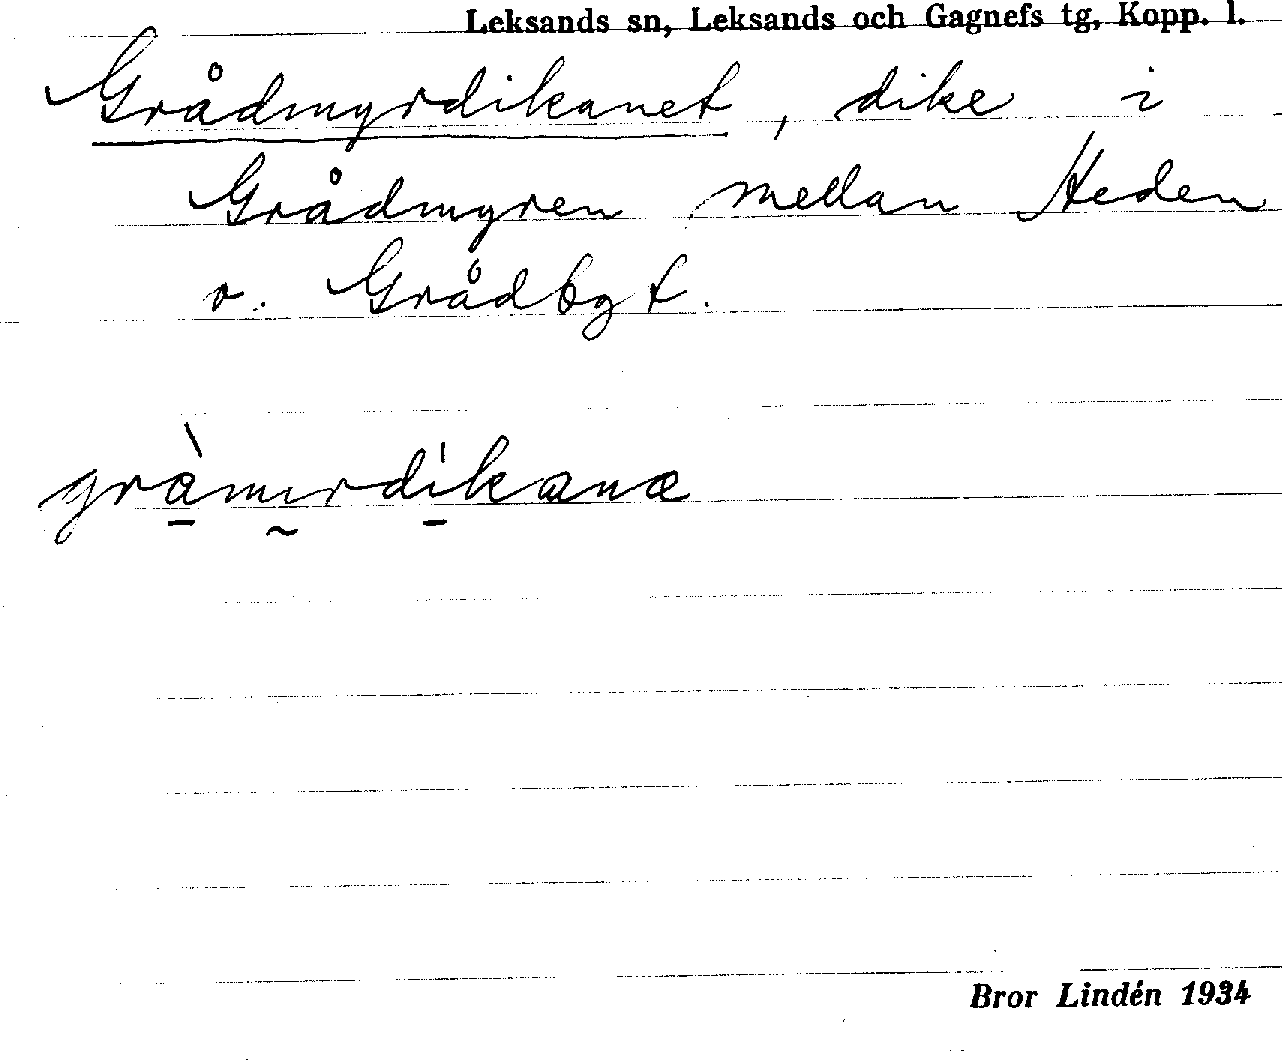 Leksands sn, Leksands och Gagnefs tg, Kopp. l.
Grådmyrdikanet, dike i
Grådmyren mellan Heden
o. Grådbyt.
gràmɪrdikanæ
Bror Lindén 1934